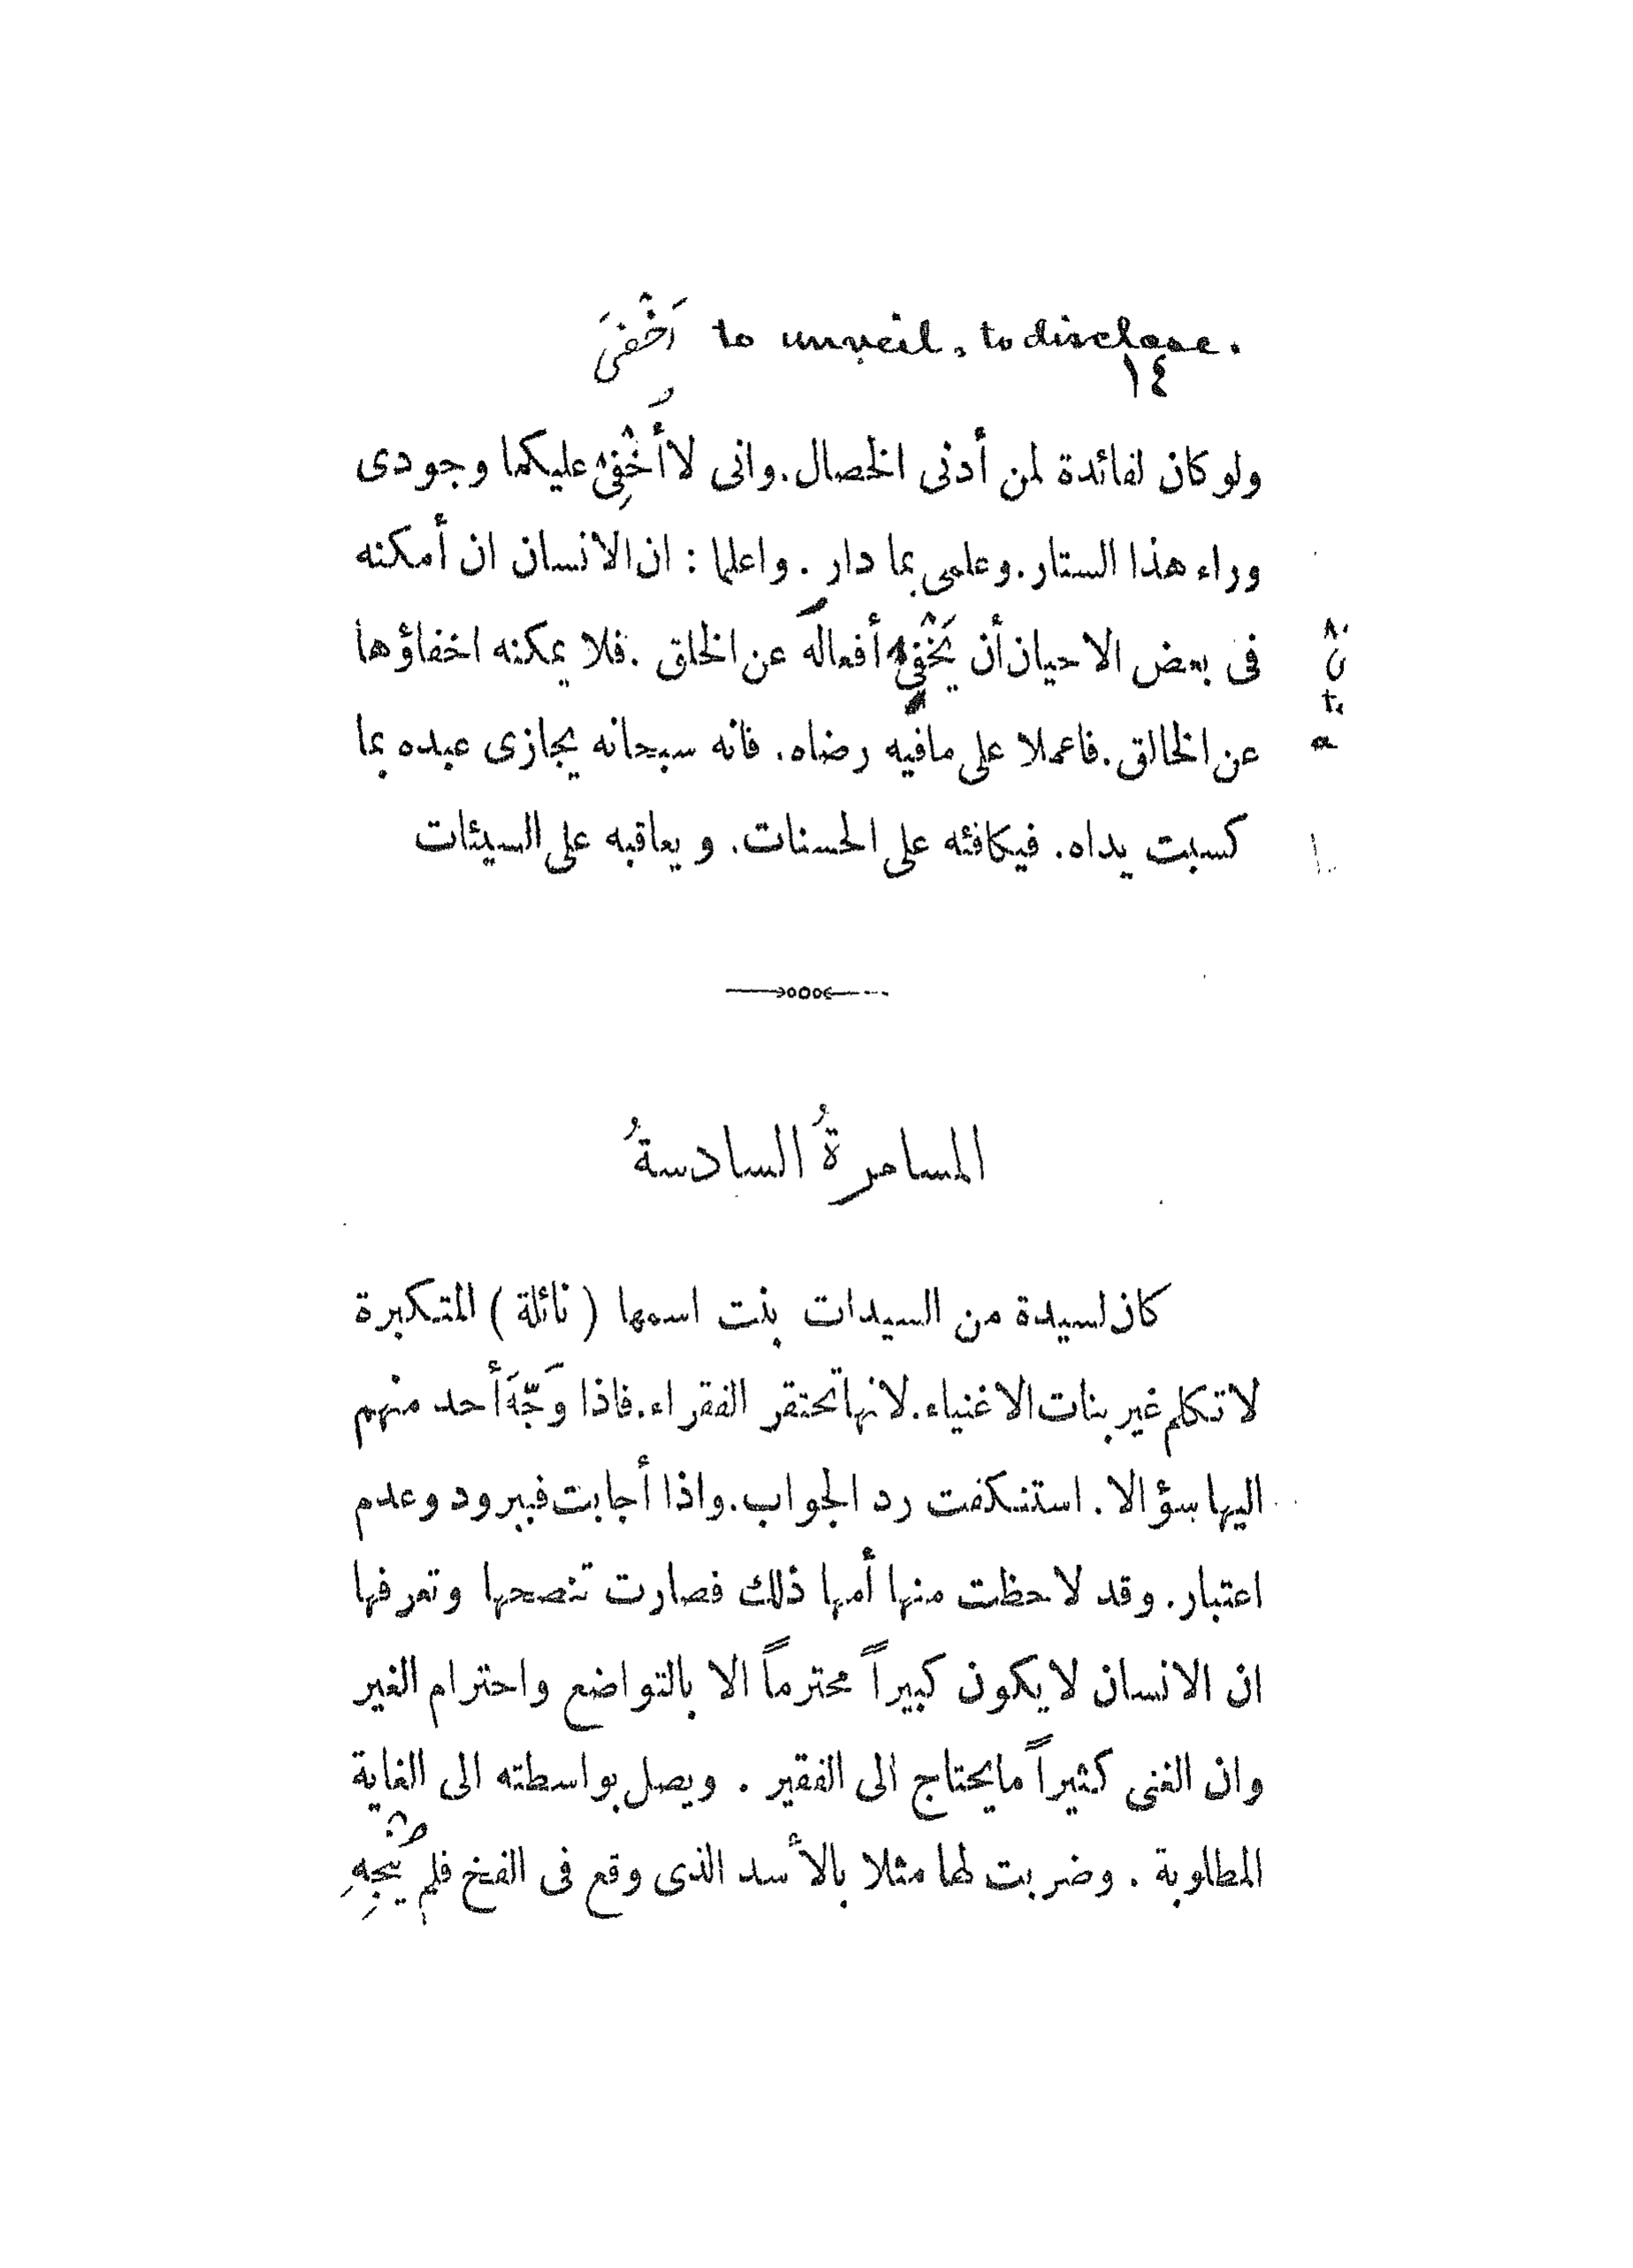 أَخْفىَ to unveil, to disclose.
١٤
ولو كان لفائدة لمن أدنى الخصال. وانى لا أُخْفِى عليكما وجودى
وراء هذا الستار. وعلمى بما دار . واعلما : ان الانسان ان أمكنه
فى بعض الاحيان أن يَخْفِى أفعالَه عن الخلق . فلا يمكنه اخفاؤها
عن الخالق. فاعملا على مافيه رضاه. فانه سبحانه يجازى عبده بما
كسبت يداه. فيكافئه على الحسنات. ويعاقبه على السيئات
المسامرةُ السادسةُ
كان لسيدة من السيدات بنت اسمها ( نائلة ) المتكبرة
لا تكلم غير بنات الاغنياء. لانها تحتقر الفقراء. فاذا وَجَّهَ أحد منهم
اليها سؤالا . استنكفت رد الجواب. واذا أجابت فببرود وعدم
اعتبار. وقد لاحظت منها أمها ذلك فصارت تنصحها وتعرفها
ان الانسان لا يكون كبيراً محترماً الا بالتواضع واحترام الغير
وان الغنى كثيراً ما يحتاج الى الفقير . ويصل بواسطته الى الغاية
المطلوبة . وضربت لها مثلا بالأسد الذى وقع فى الفخ فلم يُنْجِهِ